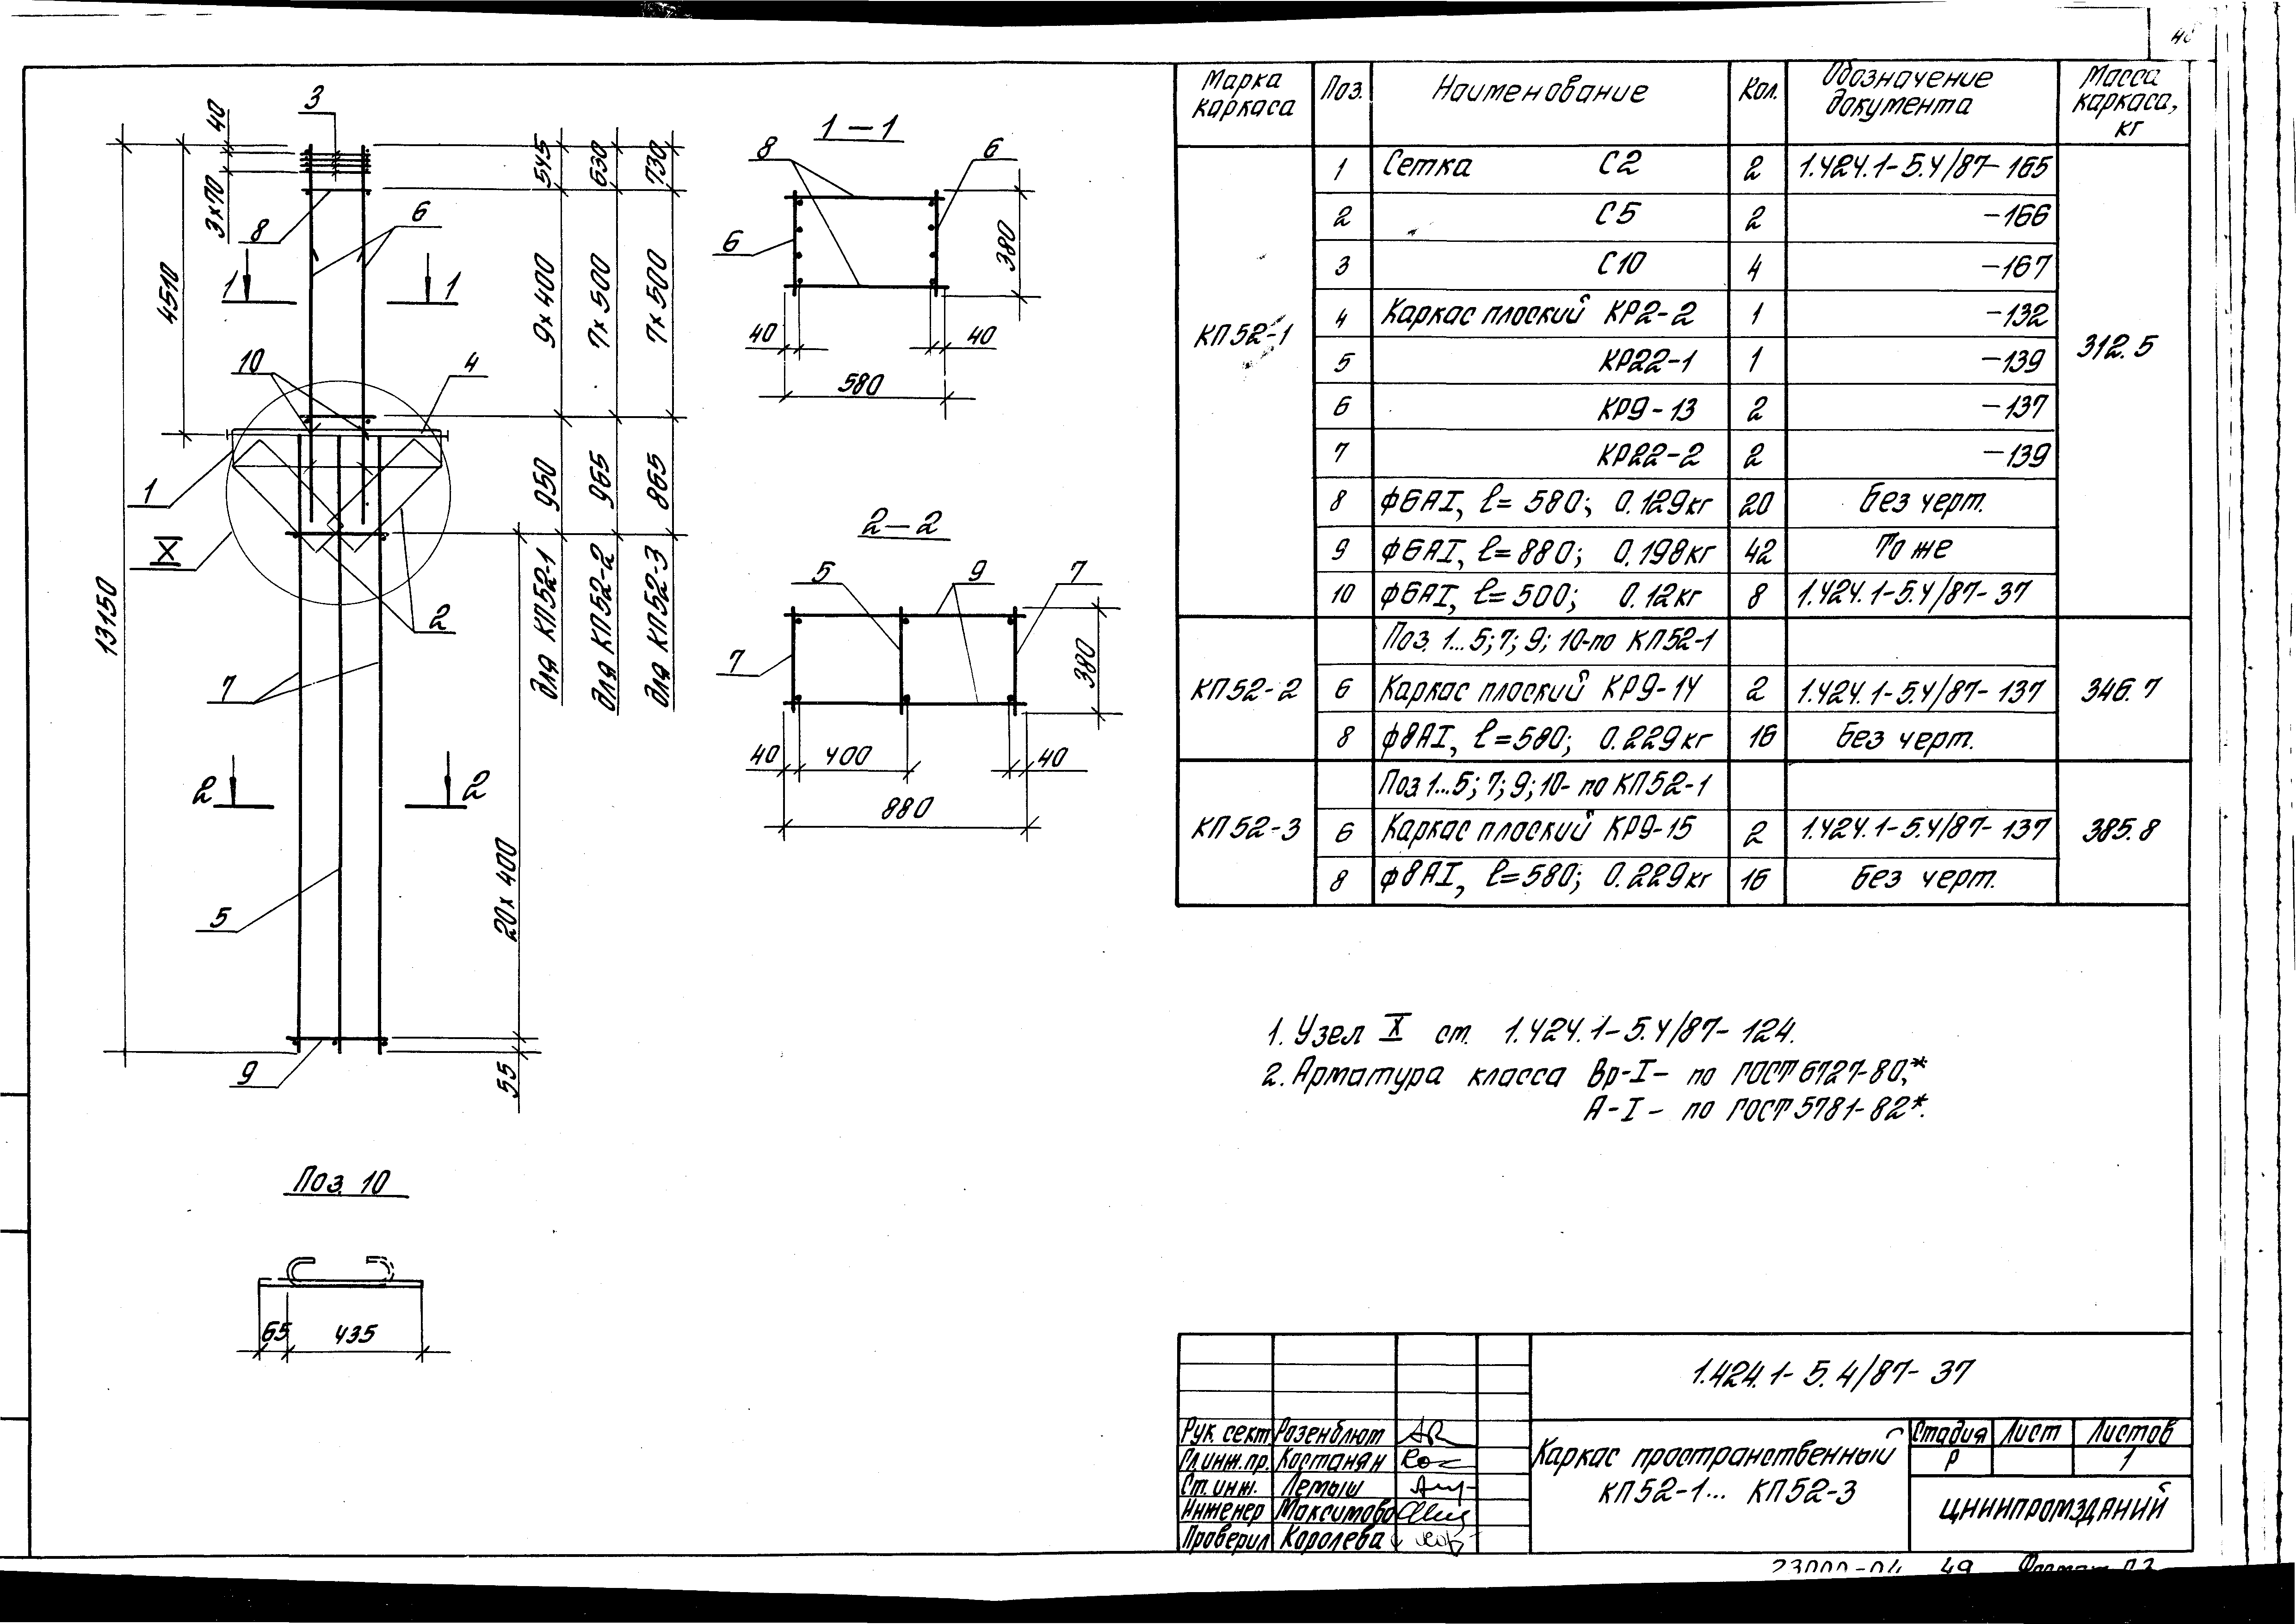 Марка каркаса
Поз.
Наименование
Кол.
Обозначение документа
Масса каркаса, кг
КП52-1
1 Сетка С2 2 1.424.1-5.4/87-165
2 С5 2 -166
3 С10 4 -167
4 Каркас плоский КР2-2 1 -132
5 КР22-1 1 -139
6 КР9-13 2 -137
7 КР22-2 2 -139
8 ф6АI, l=580; 0.129кг 20 Без черт.
9 ф6АI, l=880; 0.198кг 42 То же
10 ф6АI, l=500; 0.12кг 8 1.424.1-5.4/87-37
312.5
КП52-2
Поз. 1...5; 7; 9; 10-по КП52-1
6 Каркас плоский КР9-14 2 1.424.1-5.4/87-137
8 ф8АI, l=580; 0.229кг 16 Без черт.
346.7
КП52-3
Поз 1...5; 7; 9; 10- по КП52-1
6 Каркас плоский КР9-15 2 1.424.1-5.4/87-137
8 ф8АI, l=580; 0.229кг 16 Без черт.
385.8
3
40
3х70
8
6
1
1
4510
10
4
1
X
2
13150
7
2
2
5
9
545
9х400
950
для КП52-1
630
7х500
965
для КП52-2
730
7х500
865
для КП52-3
20х400
55
1-1
8
6
6
380
40
40
580
2-2
5
9
7
7
380
40
400
40
880
Поз. 10
65
435
1. Узел X см. 1.424.1-5.4/87-124.
2. Арматура класса Вр-I- по ГОСТ 6727-80,*
А-I- по ГОСТ 5781-82*.
1.424.1-5.4/87-37
Рук. сект. Розенблюм
Гл.инж.пр. Костанян
Ст. инж. Лемыш
Инженер Максимова
Проверил Королева
Каркас пространственный
КП52-1... КП52-3
Стадия Лист Листов
Р 1
ЦНИИПРОМЗДАНИЙ
23000-04 49